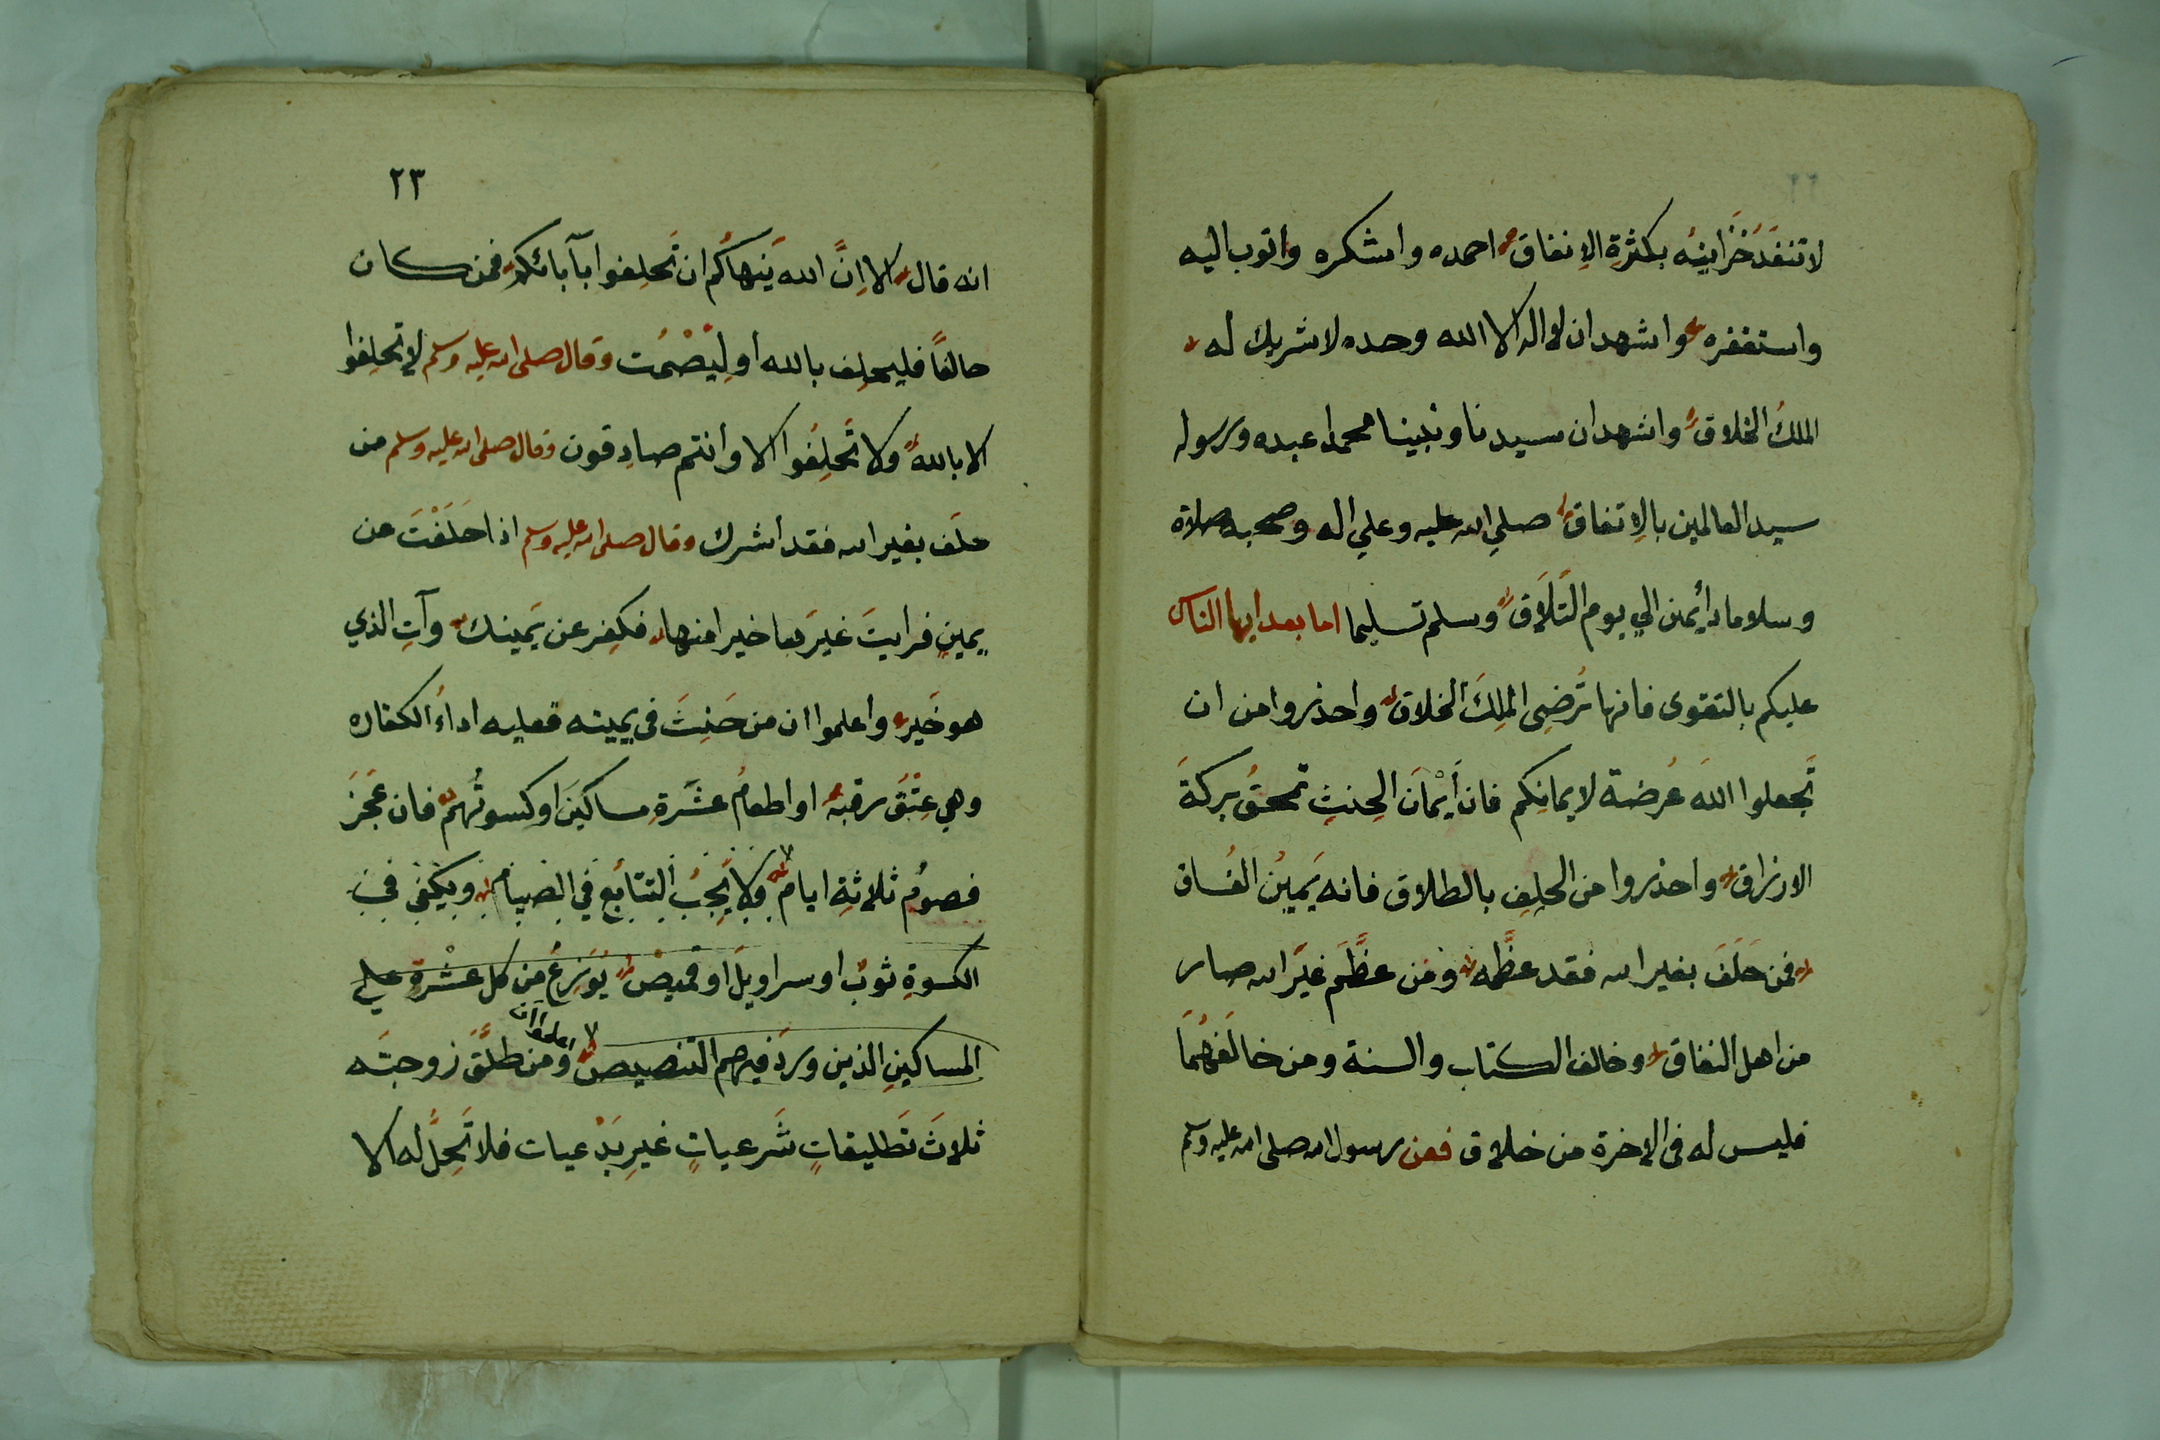 ٢٢
لا تنفَدُ خَزَاينِهُ بكثرةِ الاِنفاق احمده واشكره واتوب اليه
واستغفره واشهد ان لا اله الا الله وحده لا شريك له
الملكُ الخلاق واشهد ان سيدنا ونبينا محمدا عبده ورسوله
سيد العالمين بالاِتفاق صلي الله عليه وعلي اله وصحبه صلاة
وسلاما دأيمن الي يوم التَّلَاق وسلم تسليما اما بعد ايها الناس
عليكم بالتقوى فانها تُرضِى الملِكَ الخلاق واحذروا من ان
تَجعلوا اللهَ عُرضة لايمانِكم فان أَيْمَانَ الحِنثِ تمحقُ بركةَ
الارزاق واحذروا من الحلِفِ بالطلاق فانه يَمِينُ الفُساق
فمن حَلَفَ بغير الله فقد عظَّمه ومن عظَّمَ غيَر الله صار
من اهل النفاق وخالف الكتاب والسنة ومن خالَفهُمَا
فليس له فى الاخرة من خلاق فعن رسول الله صلى الله عليه وسلم
٢٣
انه قال الا اِنَّ الله يَنهاكُم ان تَحلِفوا بآبائكم فمن كان
حالفًا فليحلِف بالله او لِيَصْمُت وقال صلى الله عليه وسلم لا تحلِفوا
الا بالله ولا تَحلِفُوا الا وأنتم صادِقون وقال صلى الله عليه وسلم من
حلَف بغير الله فقد أشرك وقال صلى الله عليه وسلم اذا حَلَفْتَ عن
يمينٍ فرايتَ غيرَها خيرا منها فكفِر عن يَمينك وآتِ الذي
هو خَير واعلموا ان من حَنِثَ فى يمينه فعليه اداءُ الكفاره
وهي عِتْقُ رقبه او اطعامُ عشَرةِ مساكينَ او كسوتُهم فان عَجَزَ
فصومُ ثلاثةِ ايام ولا يَجِبُ التتابُع في الصيام ويكفي في
الكسوةِ ثوبٌ او سراويلَ او قميصْ يُوَزعُ من كل عشْرةٍ علي
المساكينِ الذين ورَدَ فيرهم التنصيص واعلموا ان من طلَّقَ زوجتَه
ثلاثَ تَطليقاتٍ شَرعياتٍ غيرِ بَدْعيات فلا تَحِلُّ له الا